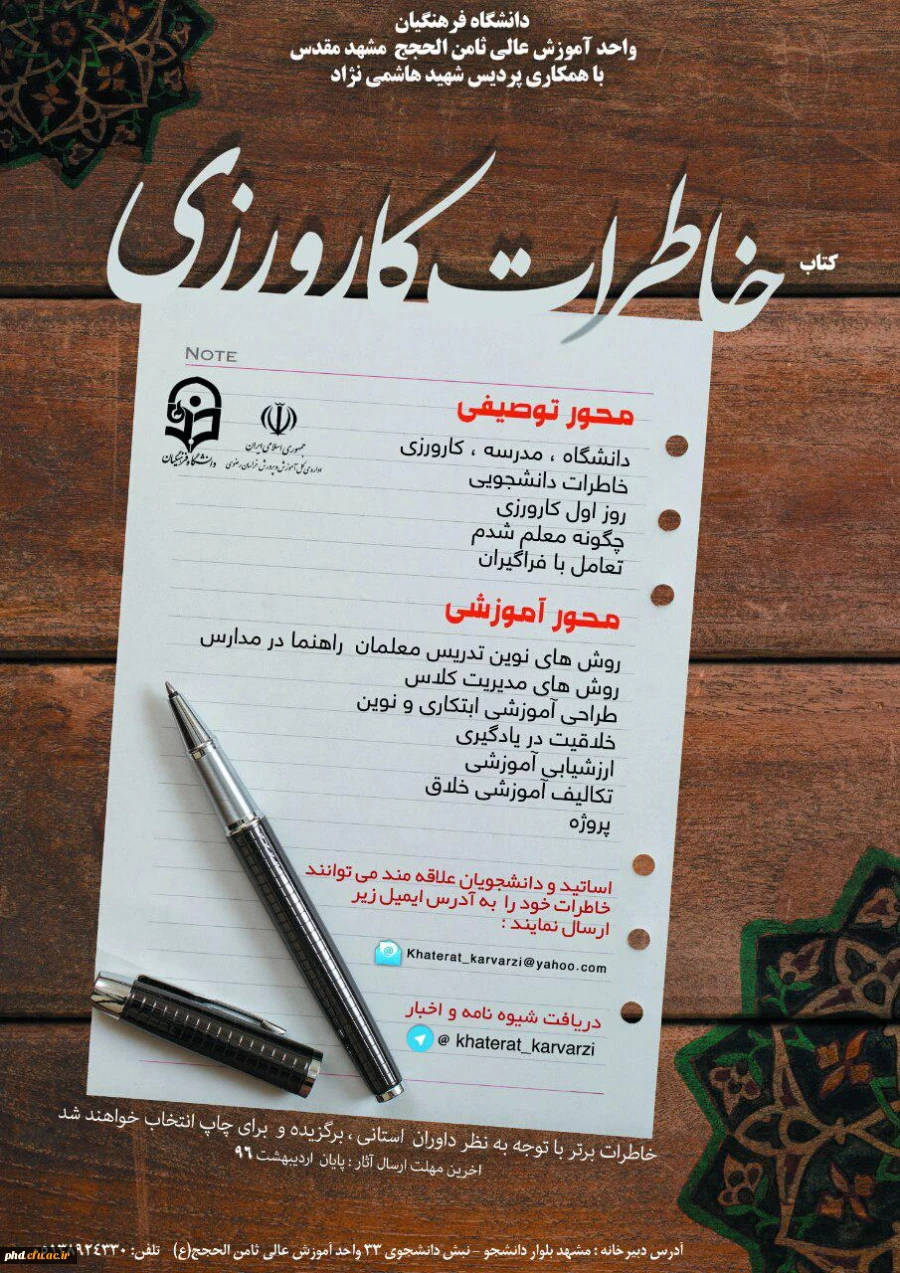 دانشگاه فرهنگیان
واحد آموزش عالی ثامن الحجج مشهد مقدس
با همکاری پردیس شهید هاشمی نژاد
کتاب
خاطرات کارورزی
NOTE
جمهوری اسلامی ایران
اداره‌ی کل آموزش و پرورش خراسان رضوی
دانشگاه فرهنگیان
محور توصیفی
دانشگاه ، مدرسه ، کارورزی
خاطرات دانشجویی
روز اول کارورزی
چگونه معلم شدم
تعامل با فراگیران
محور آموزشی
روش های نوین تدریس معلمان راهنما در مدارس
روش های مدیریت کلاس
طراحی آموزشی ابتکاری و نوین
خلاقیت در یادگیری
ارزشیابی آموزشی
تکالیف آموزشی خلاق
پروژه
اساتید و دانشجویان علاقه مند می توانند
خاطرات خود را به آدرس ایمیل زیر
ارسال نمایند :
Khaterat_karvarzi@yahoo.com
دریافت شیوه نامه و اخبار
@ khaterat_karvarzi
خاطرات برتر با توجه به نظر داوران استانی ، برگزیده و برای چاپ انتخاب خواهند شد
اخرین مهلت ارسال آثار : پایان اردیبهشت ۹۶
آدرس دبیرخانه : مشهد بلوار دانشجو - نبش دانشجوی ۳۳ واحد آموزش عالی ثامن الحجج(ع) تلفن:
phd.cfu.ac.ir